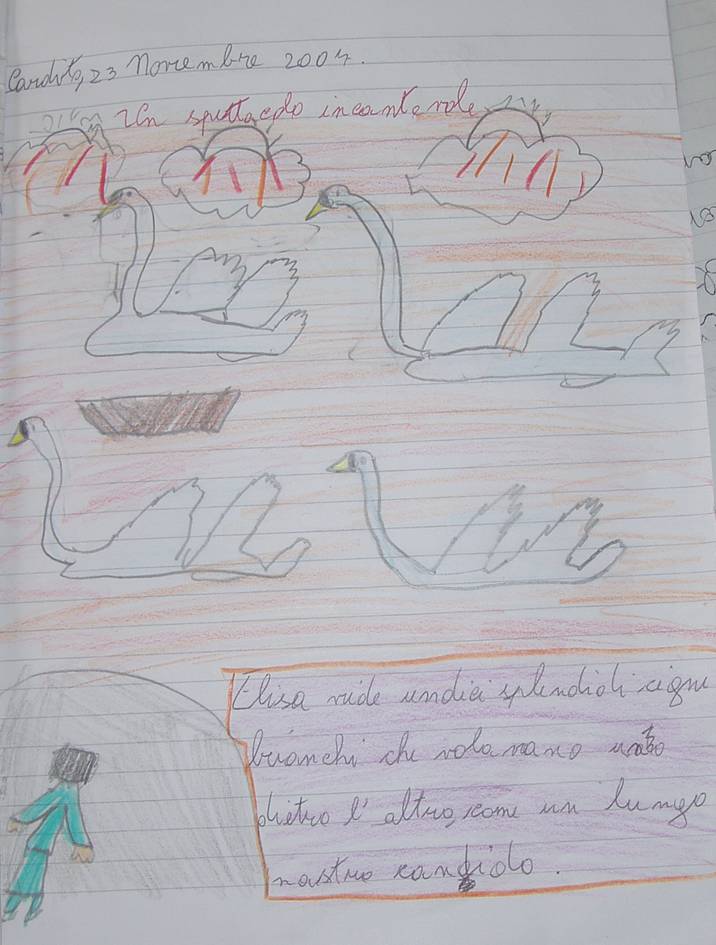 Cardito, 23 Novembre 2004.
Un spettacolo incantevole
Elisa vide undici splendidi cigni
bianchi che volavano uno
dietro l'altro, come un lungo
nastro candido.